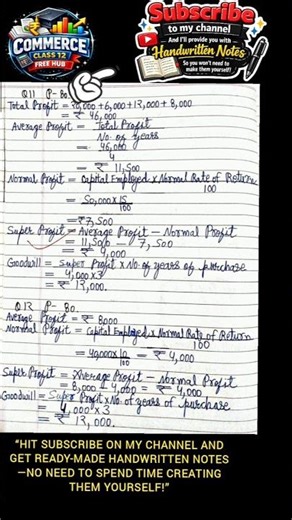 COMMERCE
CLASS 12
FREE HUB
Subscribe
to my channel
And I'll provide you with
Handwritten Notes
So you won't need to
make them yourself?
Q11 P- 80.
Total Profit = 20,000 + 6,000 + 12,000 + 8,000
= ₹ 46,000
Average Profit = Total Profit
No. of years
= 46,000
4
= ₹ 11,500
Normal Profit = Capital Employed x Normal Rate of Return
100
= 50,000 x 15
100
= ₹7,500
Super Profit = Average Profit - Normal Profit
= 11,500 - 7,500
= ₹ 4,000
Goodwill = Super Profit x No. of years of purchase
= 4,000 x 3
= ₹ 12,000.
Q12 P- 80.
Average Profit = ₹ 8000
Normal Profit = Capital Employed x Normal Rate of Return
100
= 40,000 x 10
100
= ₹ 4,000
Super Profit = Average Profit - Normal Profit
= 8,000 - 4,000 = ₹ 4,000
Goodwill = Super Profit x No. of years of purchase
= 4,000 x 3
= ₹ 12,000.
"HIT SUBSCRIBE ON MY CHANNEL AND
GET READY-MADE HANDWRITTEN NOTES
—NO NEED TO SPEND TIME CREATING
THEM YOURSELF!"